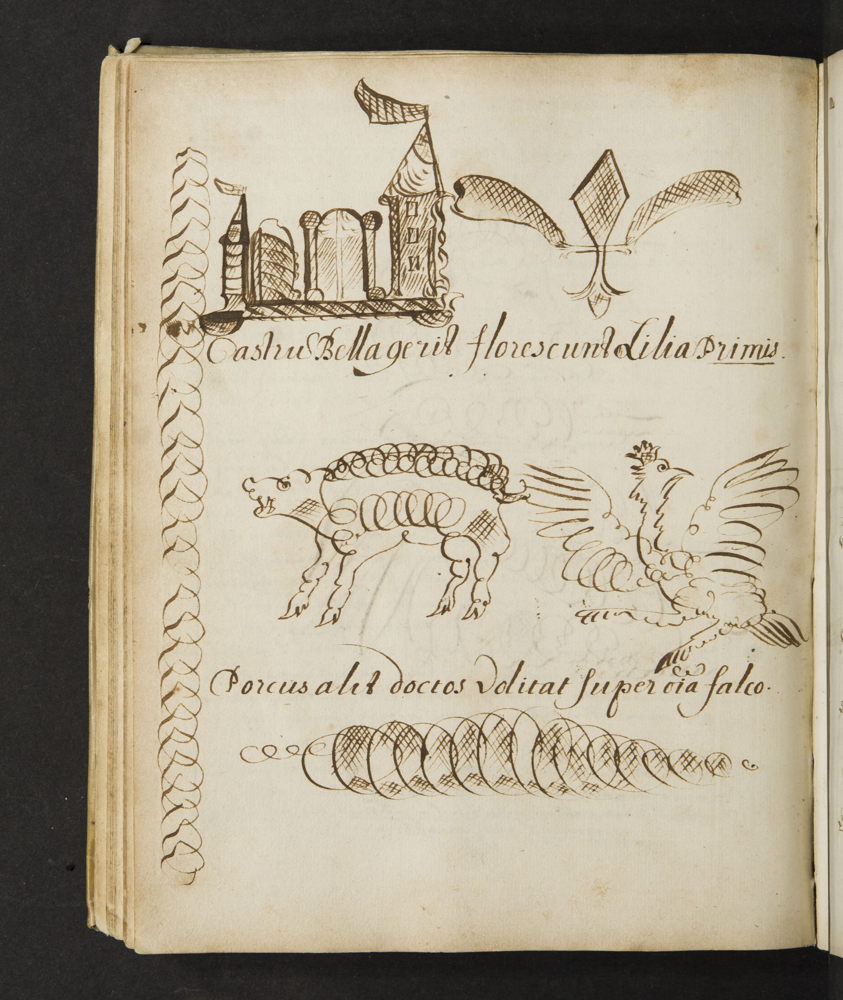 Castrũ Bella gerit florescunt Lilia Primis.
Porcus alit doctos Volitat super oĩa falco.